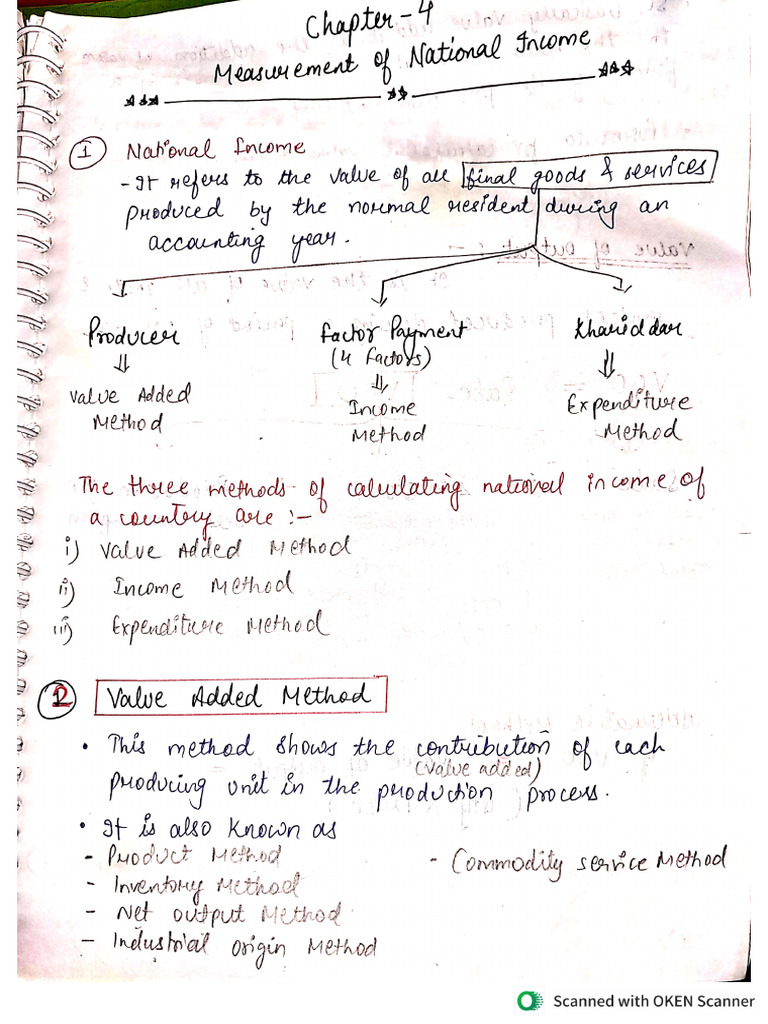 Chapter-4
Measurement of National Income
① National Income
- It refers to the value of all final goods & services
produced by the normal resident during an
accounting year.
Producer
Factor Payment
Khariddar
(4 Factors)
Value Added
Method
Income
Method
Expenditure
Method
The three methods of calculating national income of
a country are :-
i) Value Added Method
ii) Income Method
iii) Expenditure Method
2 Value Added Method
• This method shows the contribution of each
(value added)
producing unit in the production process.
• It is also known as
- Product Method
- Commodity service Method
- Inventory Method
- Net output Method
- Industrial origin Method
Scanned with OKEN Scanner